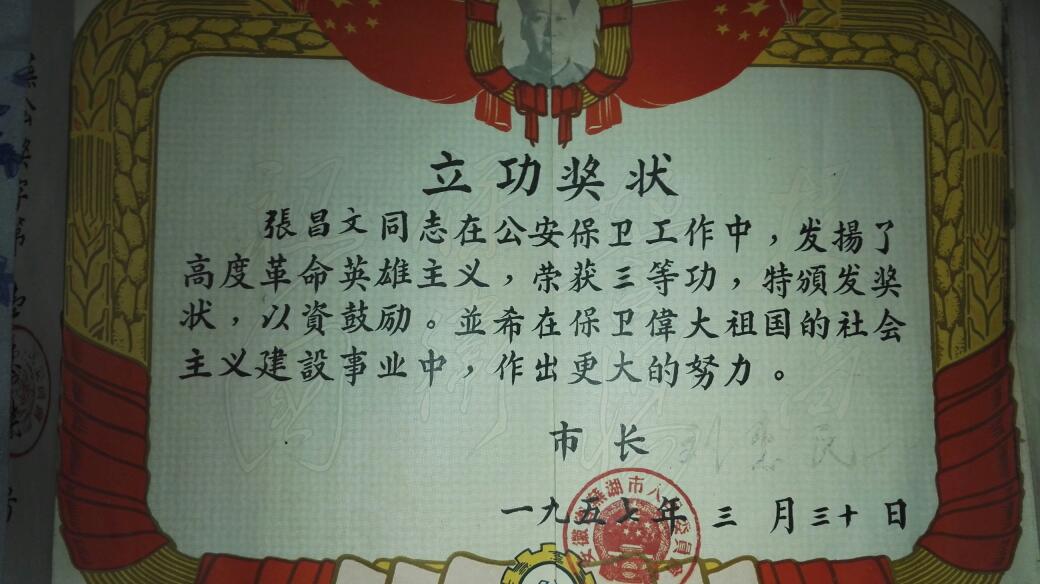 立功奖状
張昌文同志在公安保卫工作中，发揚了
高度革命英雄主义，荣获三等功，特頒发奖
状，以資鼓励。並希在保卫偉大祖国的社会
主义建設事业中，作出更大的努力。
市长
一九五七年三月三十日
安徽省蕪湖市人民委員会